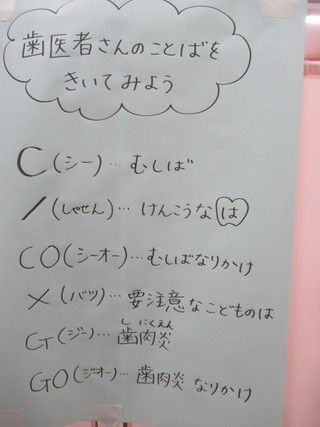 歯医者さんのことばを
きいてみよう
C(シー)…むしば
/(しゃせん)…けんこうなは
CO(シーオー)…むしばなりかけ
×(バツ)…要注意なこどものは
G(ジー)…歯肉炎(しにくえん)
GO(ジオー)…歯肉炎なりかけ